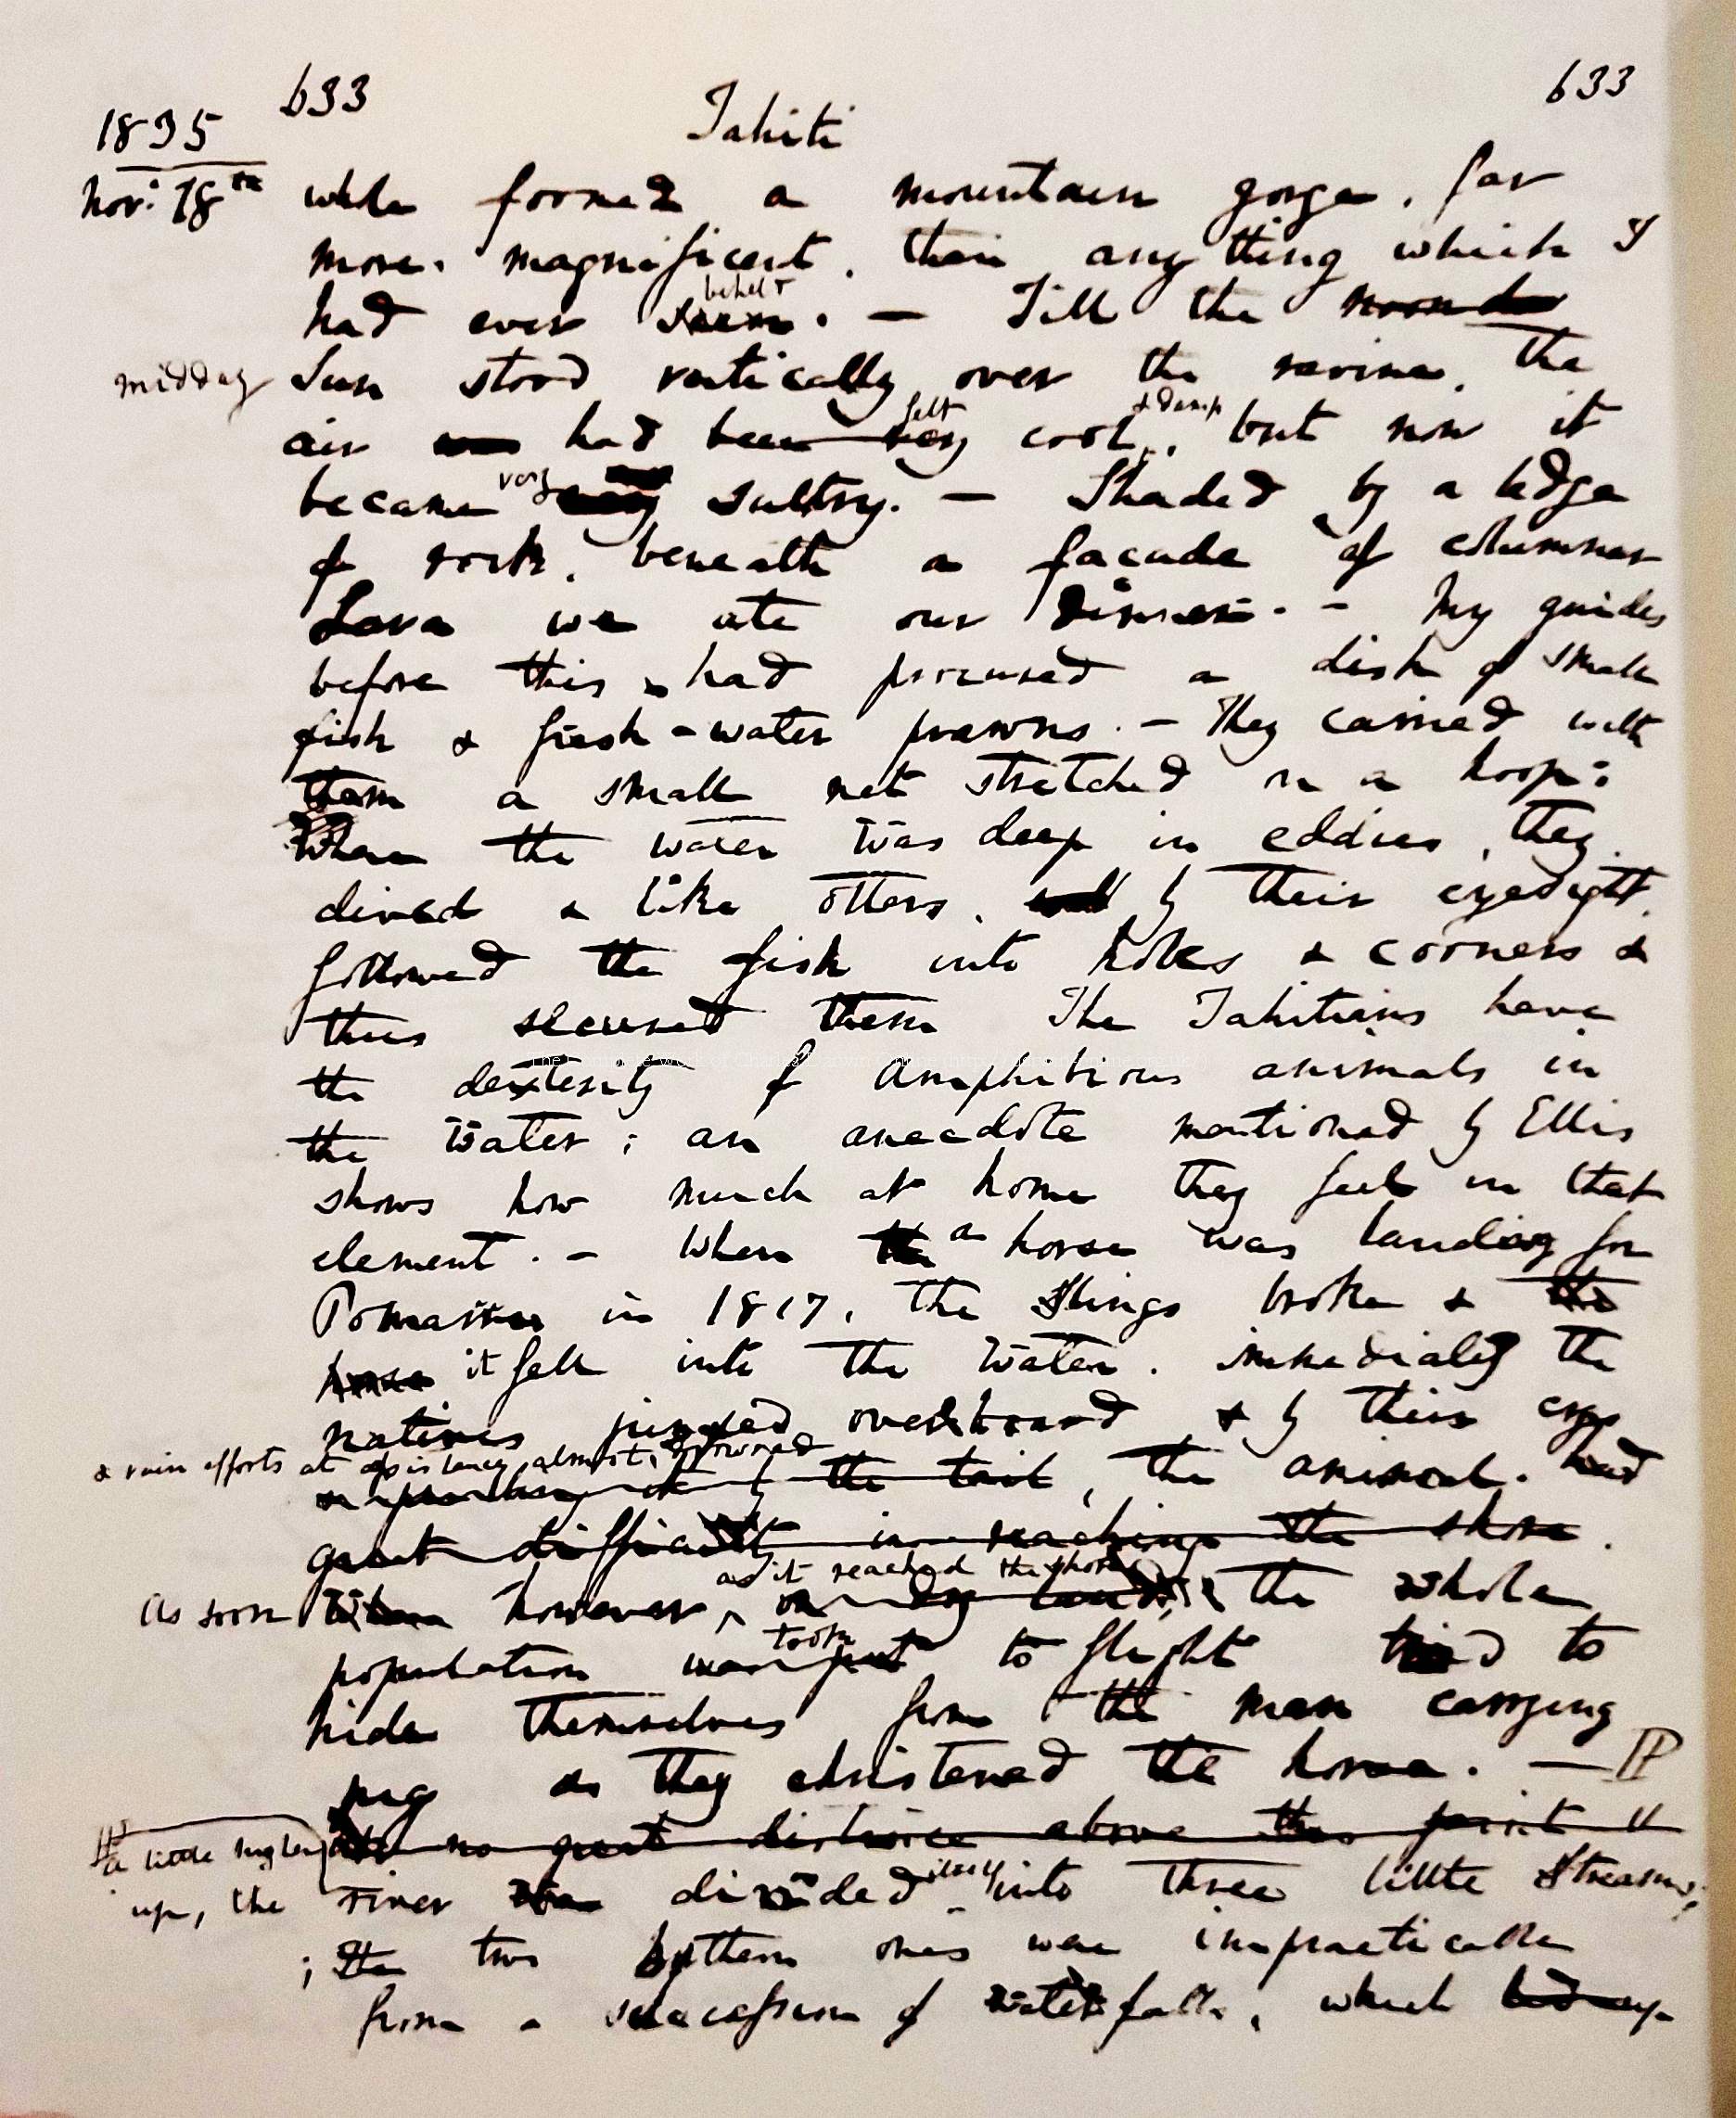 633 Tahiti 633
1835
Nov: 18th whole formed a mountain gorge, far
more magnificent, than any thing which I
behelt
had ever seen. — Till the noon
midday Sun stood vertically over the ravine, the
felt & damp
air was had been very cool, but now it
became very sultry. — Shaded by a ledge
of rock, beneath a facade of columnar
Lava we ate our dinner. — My guides
before this had procured a dish of small
fish & fresh-water prawns. — They carried with
them a small net stretched on a hoop:
Where the water was deep in eddies, they
dived & like otters, by their eyesight
followed the fish into holes & corners &
thus secured them The Tahitians have
the dexterity of Amphibious animals in
the water; an anecdote mentioned by Ellis
shows how much at home they feel in that
element. — When the a horse was landing for
Pomarre in 1817, the slings broke & the
horse it fell into the water. immediately the
natives jumped overboard & by their crys
& vain efforts at assistance, almost drowned
by the tail, the animal. had
great difficulty in reaching the shore.
as it reached the shore
As soon When however, on landing, the whole
took
population was put to flight tried to
hide themselves from the man carrying
pig as they christened the horse. —
a little higher At no great distance above this point
itself
up, the river was divided into three little streams;
; The two Northern ones were impracticable
from a succession of waterfalls, which